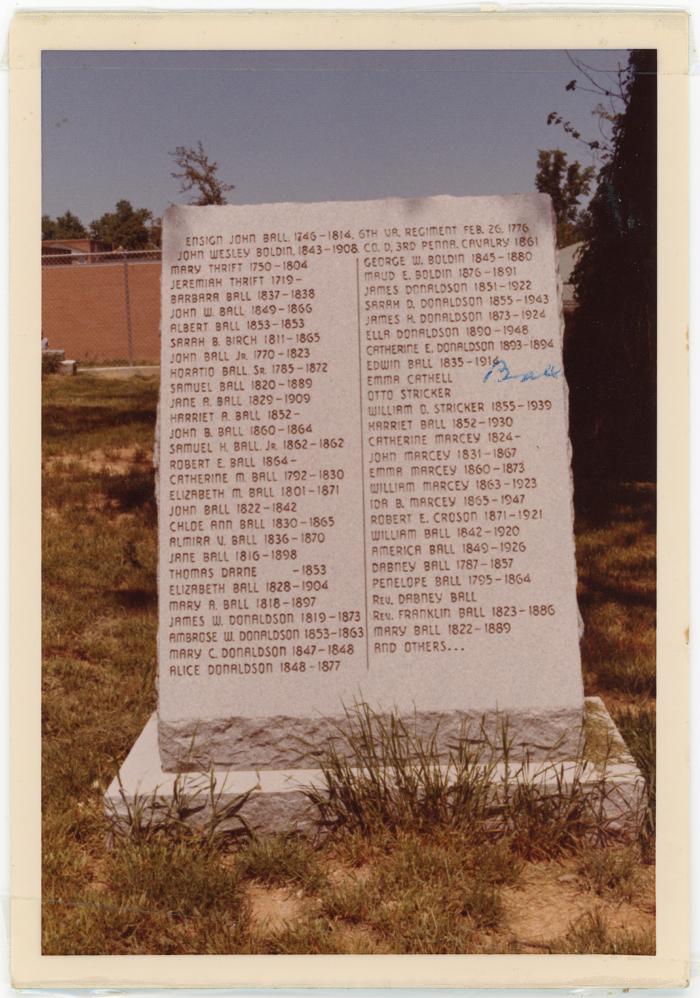 ENSIGN JOHN BALL, 1746-1814, 6TH VA. REGIMENT FEB. 26, 1776
JOHN WESLEY BOLDIN, 1843-1908, CO. D, 3RD PENNA. CAVALRY 1861
MARY THRIFT 1750-1804
JEREMIAH THRIFT 1719-
BARBARA BALL 1837-1838
JOHN W. BALL 1849-1866
ALBERT BALL 1853-1853
SARAH B. BIRCH 1811-1865
JOHN BALL JR. 1770-1823
HORATIO BALL, SR. 1785-1872
SAMUEL BALL 1820-1889
JANE A. BALL 1829-1909
HARRIET A. BALL 1852-
JOHN B. BALL 1860-1864
SAMUEL H. BALL, JR. 1862-1862
ROBERT E. BALL 1864-
CATHERINE M. BALL 1792-1830
ELIZABETH M. BALL 1801-1871
JOHN BALL 1822-1842
CHLOE ANN BALL 1830-1865
ALMIRA V. BALL 1836-1870
JANE BALL 1816-1898
THOMAS DARNE -1853
ELIZABETH BALL 1828-1904
MARY A. BALL 1818-1897
JAMES W. DONALDSON 1819-1873
AMBROSE W. DONALDSON 1853-1863
MARY C. DONALDSON 1847-1848
ALICE DONALDSON 1848-1877
GEORGE W. BOLDIN 1845-1880
MAUD E. BOLDIN 1876-1891
JAMES DONALDSON 1851-1922
SARAH D. DONALDSON 1855-1943
JAMES H. DONALDSON 1873-1924
ELLA DONALDSON 1890-1948
CATHERINE E. DONALDSON 1893-1894
EDWIN BALL 1835-1914
EMMA CATHELL Ball
OTTO STRICKER
WILLIAM D. STRICKER 1855-1939
HARRIET BALL 1852-1930
CATHERINE MARCEY 1824-
JOHN MARCEY 1831-1867
EMMA MARCEY 1860-1873
WILLIAM MARCEY 1863-1923
IDA B. MARCEY 1865-1947
ROBERT E. CROSON 1871-1921
WILLIAM BALL 1842-1920
AMERICA BALL 1849-1926
DABNEY BALL 1787-1857
PENELOPE BALL 1795-1864
REV. DABNEY BALL
REV. FRANKLIN BALL 1823-1886
MARY BALL 1822-1889
AND OTHERS...